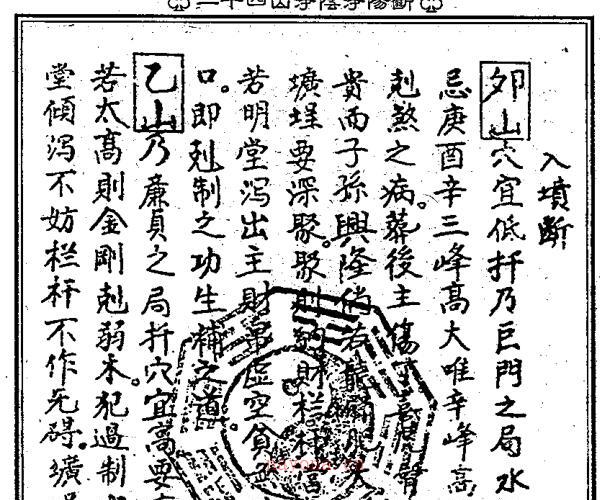 二十四山淨陰淨陽斷
入墳斷
夘山穴宜低扦乃巨門之局水
忌庚酉辛三峰高大唯辛峰高
剋煞之病。葬後主傷
貴而子孫興隆倘右龍
壙埕要深聚。聚則財栏杆
若明堂泻出主財帛虛空貧
口。即剋制之功生補之道。
乙山乃廉貞之局扦穴宜高要
若太高則金剛剋弱木。犯過制
堂傾泻不妨栏杆不作旡碍。壙